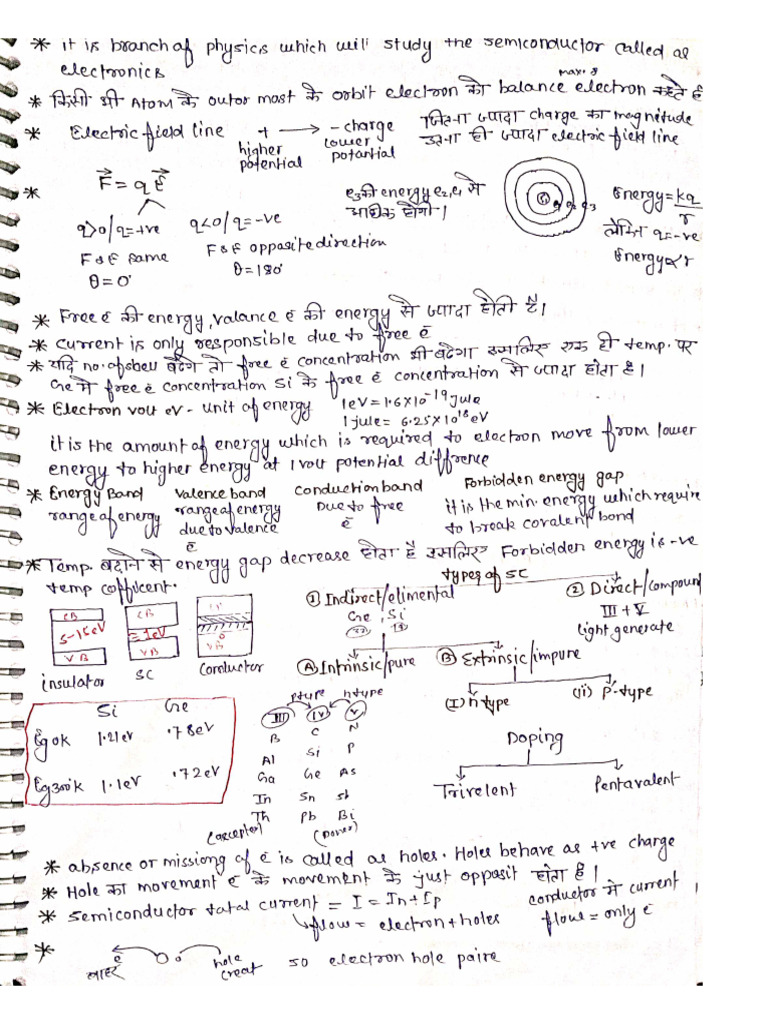 * it is branch of physics which will study the semiconductor called as
electronics
max. 8
* किसी भी Atom के outor most के orbit electron को balance electron कहते है
* Electric field line + → - charge जितना ज्यादा charge का magnitude
higher potential lower potantial उतना ही ज्यादा electric field line
* F⃗ = q E⃗
q>0/q=+ve q<0/q=-ve
F & E same F & E opposite direction
θ = 0° θ = 180°
e3 की energy e2, e1 से
अधिक होगी।
Energy = kq/r
लेकिन q=-ve
Energy ∝ r
* Free ē की energy, valance ē की energy से ज्यादा होती है।
* Current is only responsible due to free ē
* यदि no. of shell बढेगे तो free ē concentration भी बढेगा इसलिए एक ही temp. पर
Ge मे free ē concentration Si के free ē concentration से ज्यादा होता है।
* Electron volt eV - unit of energy 1eV = 1.6×10⁻¹⁹ jule
1 jule = 6.25×10¹⁸ eV
it is the amount of energy which is required to electron move from lower
energy to higher energy at 1 volt potential diffrence
* Energy Band Valence band Conduction band Forbidden energy gap
range of energy range of energy Due to free it is the min. energy which require
due to valence ē to break covalent bond
ē
* Temp. बढाने से energy gap decrease होता है इसलिए Forbidden energy is -ve
temp cofficent.
types of SC
① Indirect/elimental ② Direct/compound
Ge, Si III + V
light generate
Ⓐ Intrinsic/pure Ⓑ Extrinsic/impure
(I) n type (ii) p-type
CB CB
5-15eV ≈1eV
VB VB VB
insulator SC Conductor
Si Ge
Eg0k 1.21eV .78eV
Eg300k 1.1eV .72eV
p type n type
III IV V
B C N
Al Si P
Ga Ge As
In Sn Sb
Th Pb Bi
(accepter) (Doner)
Doping
Trivelent Pentavalent
* absence or missiong of ē is called as holes. Holes behave as +ve charge
* Hole का movement ē के movement के just opposit होता है।
* Semiconductor tatal current = I = In + Ip conductor मे current
flow = electron + holes flow = only ē
* बाहर ē hole creat so electron hole paire